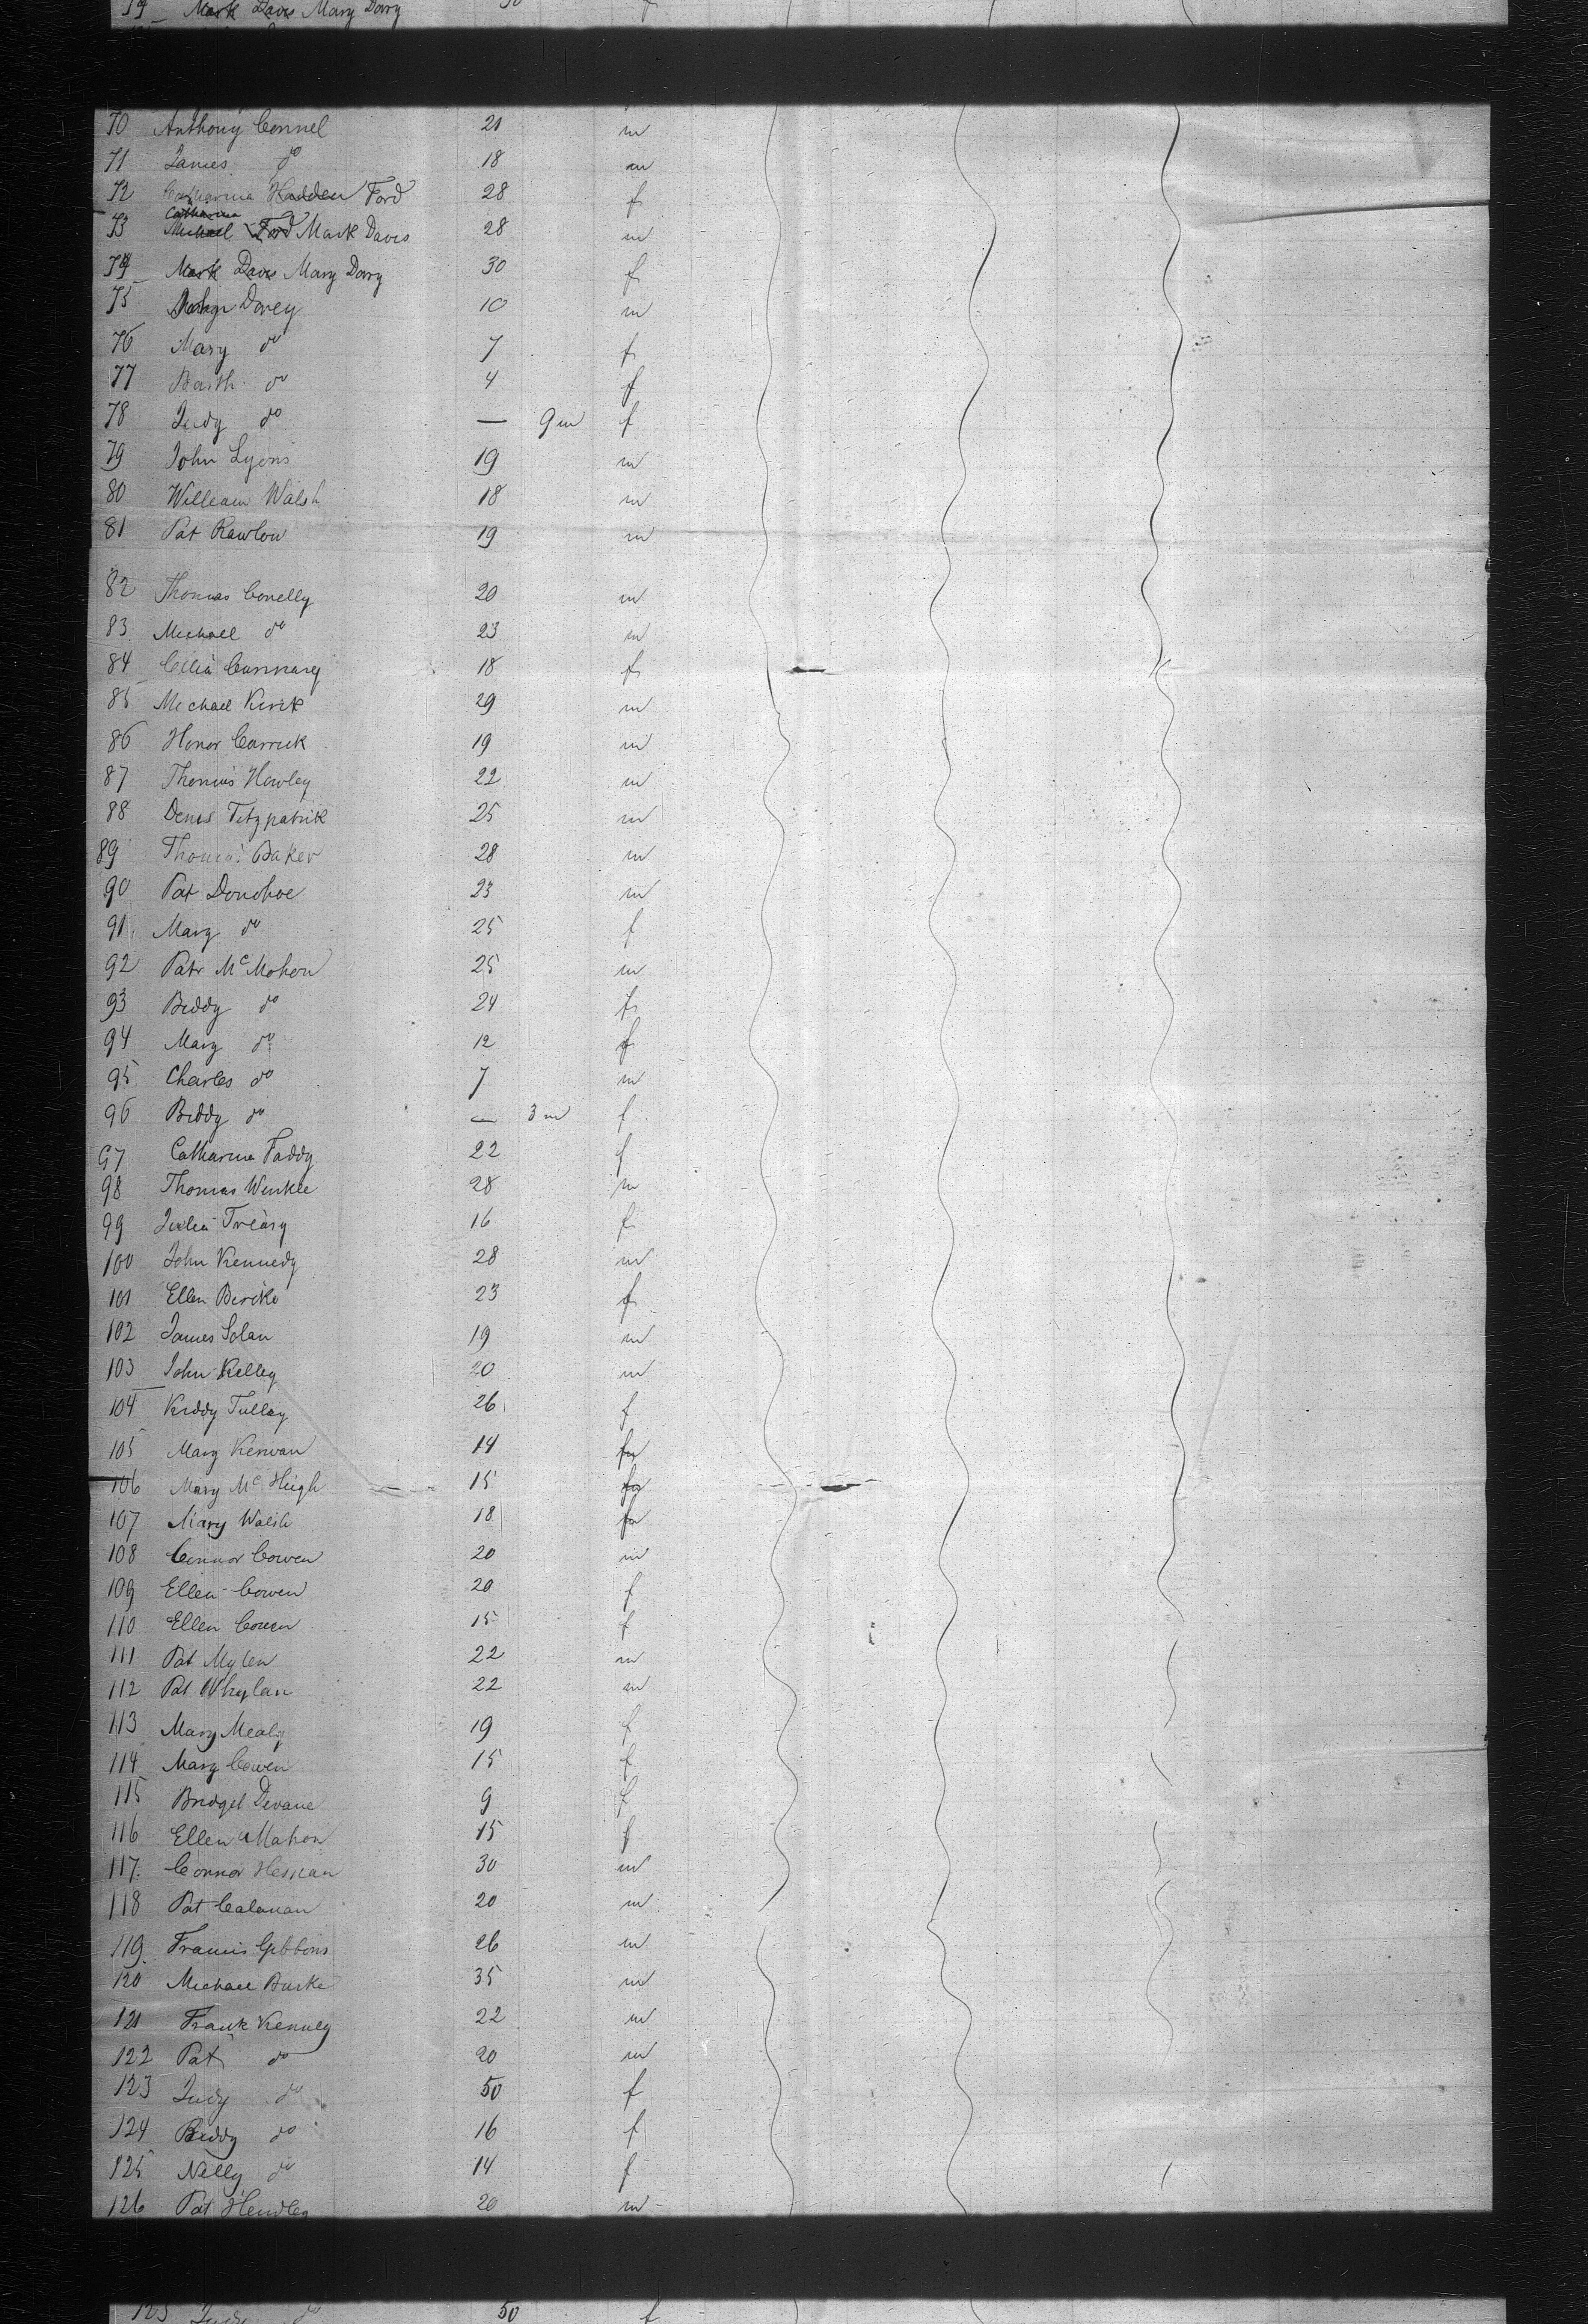 74 Mark Daves Mary Davy 30 f
70 Anthony Connel 21 m
71 James do 18 m
72 Catharina Hadden Ford 28 f
Catharina
73 Michael Ford Mark Daves 28 m
74 Mark Daves Mary Davy 30 f
75 Davey 10 m
76 Mary do 7 f
77 Barth. do 4 f
78 Judy do — 9 m f
79 John Lyons 19 m
80 William Walsh 18 m
81 Pat Rawlon 19 m
82 Thomas Conelly 20 m
83 Michael do 23 m
84 Celia Cannary 18 f
85 Michael Kirik 29 m
86 Honor Carrick 19 m
87 Thomas Howley 22 m
88 Denis Fitzpatrik 25 m
89 Thomas Baker 28 m
90 Pat Donohoe 23 m
91 Mary do 25 f
92 Patr McMohon 25 m
93 Biddy do 24 f
94 Mary do 12 f
95 Charles do 7 m
96 Biddy do — 3 m f
97 Catharina Faddy 22 f
98 Thomas Winkle 28 m
99 Julia Treasy 16 f
100 John Kennedy 28 m
101 Ellen Birike 23 f
102 James Solan 19 m
103 John Kelley 20 m
104 Kiddy Tulley 26 f
105 Mary Kerwan 14 f
106 Mary McHugh 15 f
107 Mary Walsh 18 f
108 Connor Cowen 20 m
109 Ellen Cowen 20 f
110 Ellen Cowen 15 f
111 Pat Mylen 22 m
112 Pat Whylan 22 m
113 Mary Mealy 19 f
114 Mary Cowen 15 f
115 Bridget Devane 9 f
116 Ellen Mahon 15 f
117. Connor Hessian 30 m
118 Pat Calanan 20 m
119. Francis Gibbons 26 m
120 Michael Burke 35 m
121 Frank Kenney 22 m
122 Pat do 20 m
123 Judy do 50 f
124 Biddy do 16 f
125 Nelly do 14 f
126 Pat Hendley 20 m
123 Judy do 50 f